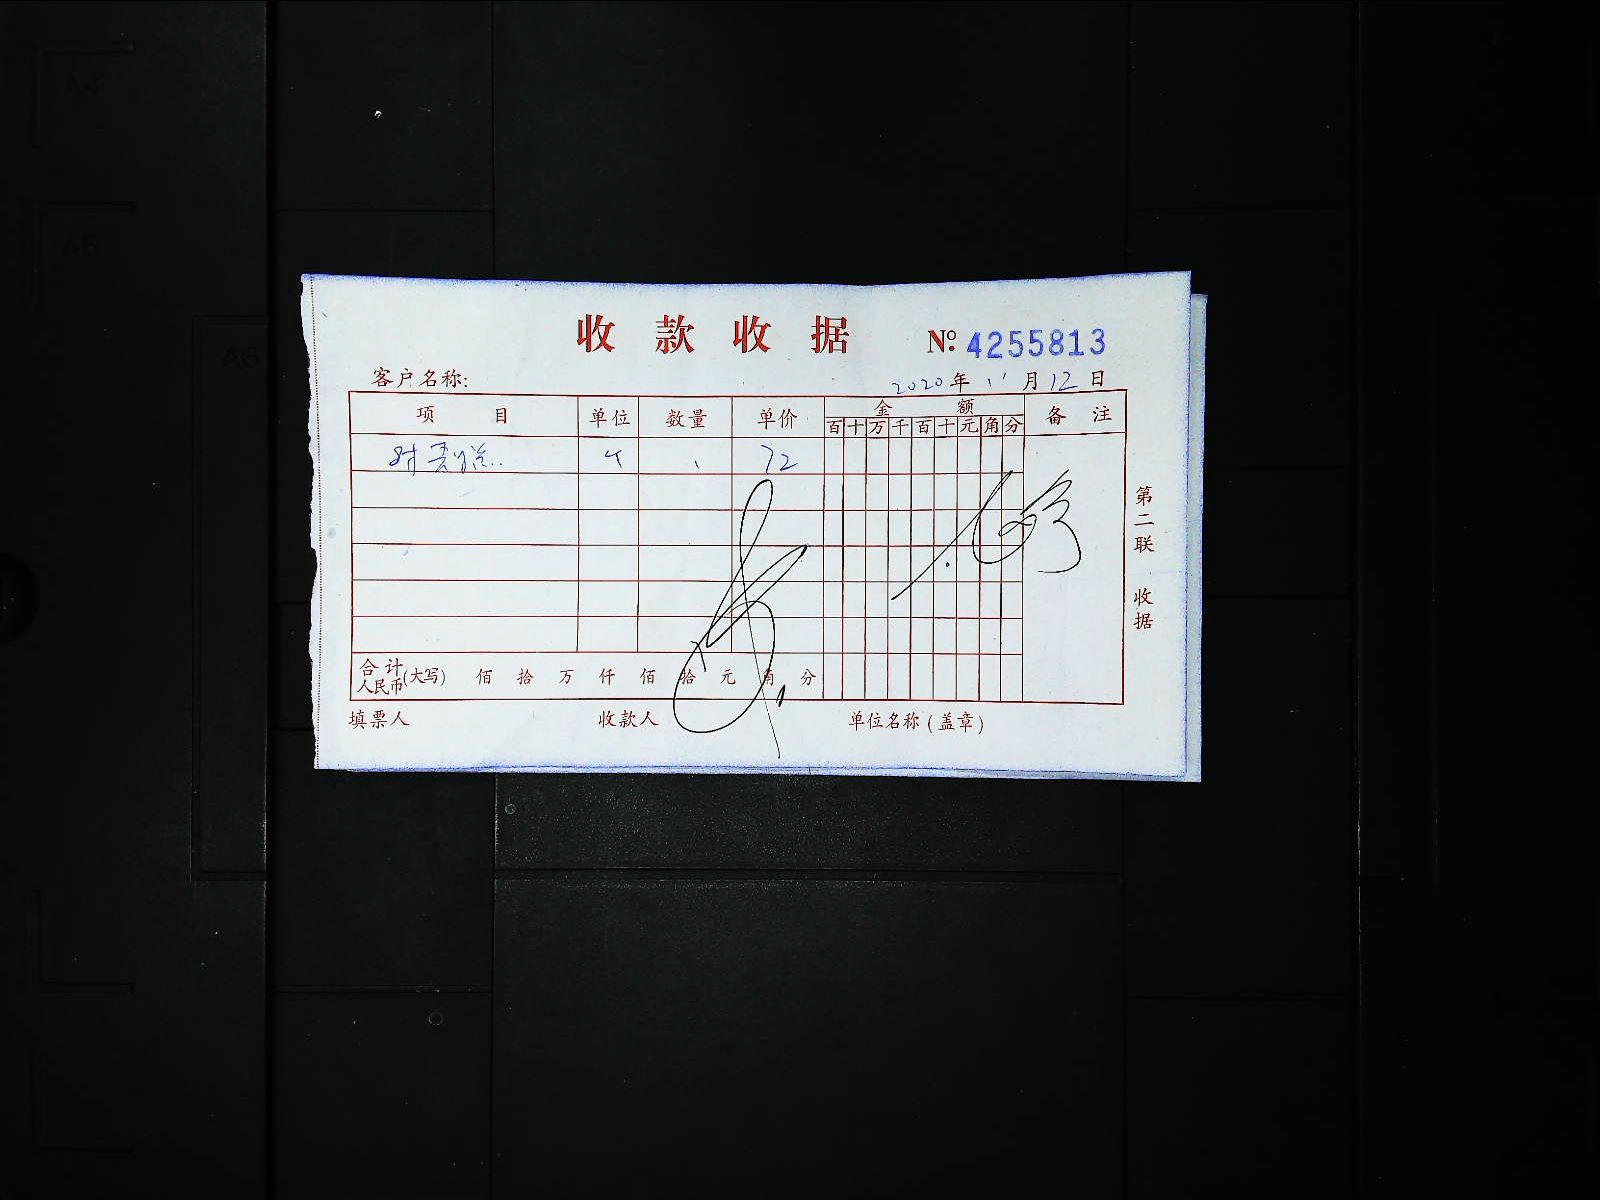 收款收据 №: 4255813
客户名称: 2020年11月12日
项目 单位 数量 单价 金额 备注
百 十 万 千 百 十 元 角 分
个 72
合计人民币(大写) 佰 拾 万 仟 佰 拾 元 角 分
填票人 收款人 单位名称(盖章)
第二联 收据
A5
A6